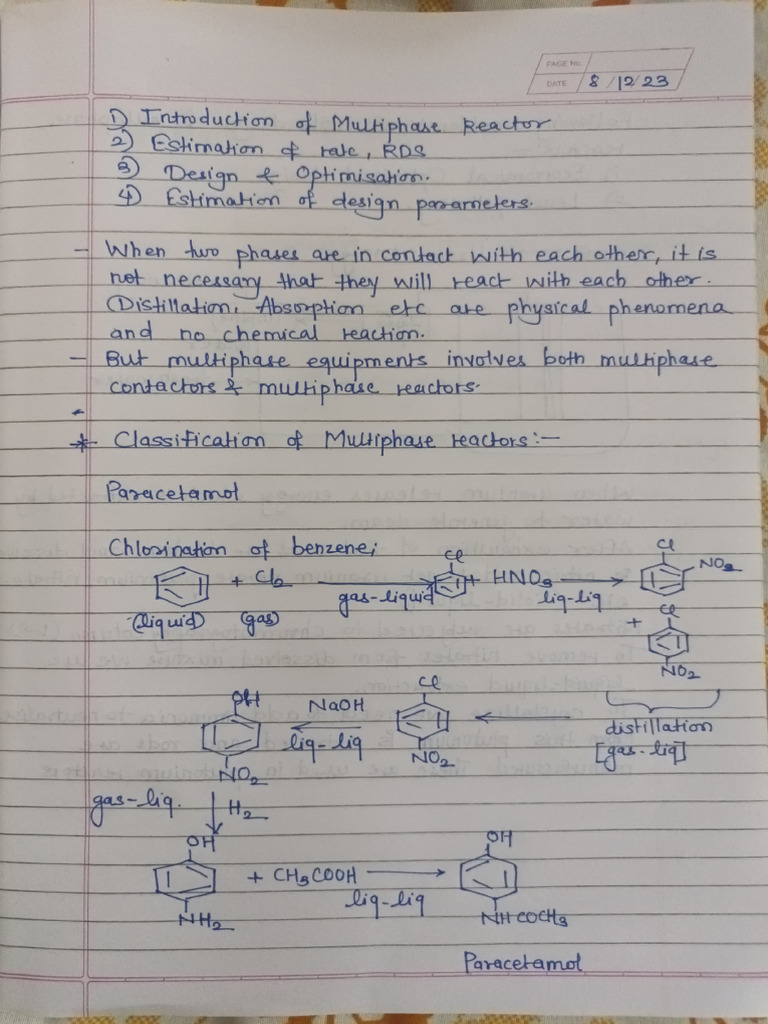 PAGE No.
DATE 8/12/23
1) Introduction of Multiphase Reactor
2) Estimation of rate, RDS
3) Design & Optimisation.
4) Estimation of design parameters.
- When two phases are in contact with each other, it is
not necessary that they will react with each other.
(Distillation, Absorption etc are physical phenomena
and no chemical reaction.
- But multiphase equipments involves both multiphase
contactors & multiphase reactors.
-
* Classification of Multiphase reactors:-
Paracetamol
Chlorination of benzene;
+ Cl2 → Cl + HNO3 → Cl NO2
gas-liquid liq-liq
(liquid) (gas)
+ Cl
NO2
OH NaOH Cl
← ←
liq-liq
NO2 NO2
distillation
[gas-liq]
gas-liq. ↓ H2
OH OH
+ CH3COOH →
liq-liq
NH2 NHCOCH3
Paracetamol